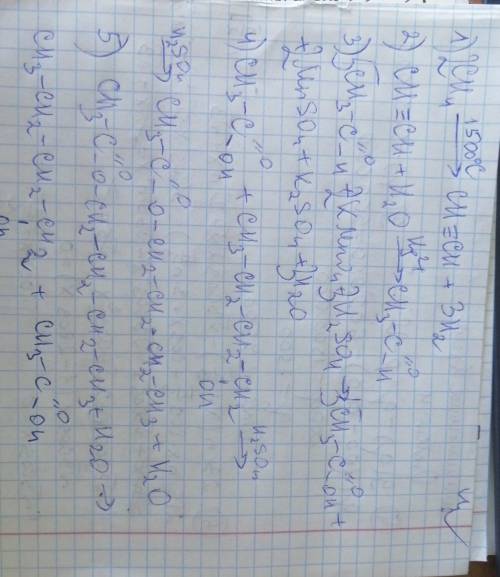 1) 2CH4 1500°C → CH≡CH + 3H2
2) CH≡CH + H2O Hg2+ → CH3-C=O-H
3) 5CH3-C=O-H + 2KMnO4 + 3H2SO4 → 5CH3-C=O-OH +
+ 2MnSO4 + K2SO4 + 3H2O
4) CH3-C=O-OH + CH3-CH2-CH2-CH2 OH H2SO4 →
H2SO4 → CH3-C=O-O-CH2-CH2-CH2-CH3 + H2O
5) CH3-C=O-O-CH2-CH2-CH2-CH3 + H2O →
CH3-CH2-CH2-CH2 OH + CH3-C=O-OH